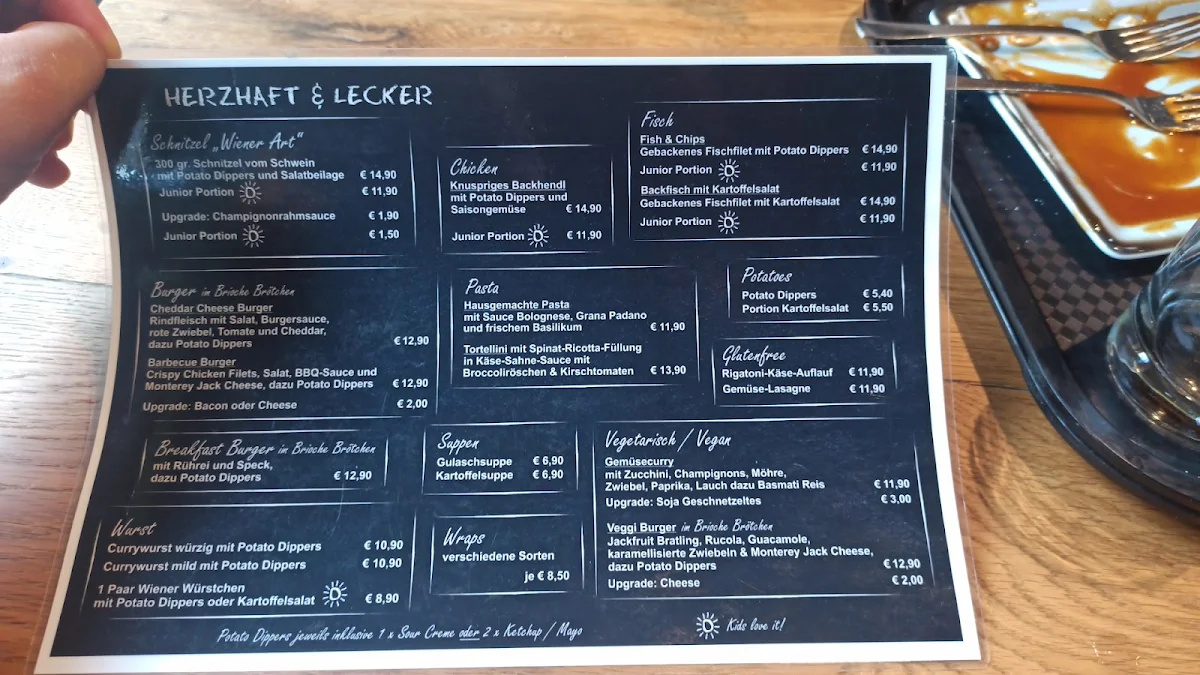 HERZHAFT & LECKER
Schnitzel „Wiener Art"
300 gr. Schnitzel vom Schwein
mit Potato Dippers und Salatbeilage € 14,90
Junior Portion € 11,90
Upgrade: Champignonrahmsauce € 1,90
Junior Portion € 1,50
Chicken
Knuspriges Backhendl
mit Potato Dippers und
Saisongemüse € 14,90
Junior Portion € 11,90
Fisch
Fish & Chips
Gebackenes Fischfilet mit Potato Dippers € 14,90
Junior Portion € 11,90
Backfisch mit Kartoffelsalat
Gebackenes Fischfilet mit Kartoffelsalat € 14,90
Junior Portion € 11,90
Burger im Brioche Brötchen
Cheddar Cheese Burger
Rindfleisch mit Salat, Burgersauce,
rote Zwiebel, Tomate und Cheddar,
dazu Potato Dippers € 12,90
Barbecue Burger
Crispy Chicken Filets, Salat, BBQ-Sauce und
Monterey Jack Cheese, dazu Potato Dippers € 12,90
Upgrade: Bacon oder Cheese € 2,00
Pasta
Hausgemachte Pasta
mit Sauce Bolognese, Grana Padano
und frischem Basilikum € 11,90
Tortellini mit Spinat-Ricotta-Füllung
in Käse-Sahne-Sauce mit
Broccoliröschen & Kirschtomaten € 13,90
Potatoes
Potato Dippers € 5,40
Portion Kartoffelsalat € 5,50
Glutenfree
Rigatoni-Käse-Auflauf € 11,90
Gemüse-Lasagne € 11,90
Breakfast Burger im Brioche Brötchen
mit Rührei und Speck,
dazu Potato Dippers € 12,90
Suppen
Gulaschsuppe € 6,90
Kartoffelsuppe € 6,90
Vegetarisch / Vegan
Gemüsecurry
mit Zucchini, Champignons, Möhre,
Zwiebel, Paprika, Lauch dazu Basmati Reis € 11,90
Upgrade: Soja Geschnetzeltes € 3,00
Veggi Burger im Brioche Brötchen
Jackfruit Bratling, Rucola, Guacamole,
karamellisierte Zwiebeln & Monterey Jack Cheese,
dazu Potato Dippers € 12,90
Upgrade: Cheese € 2,00
Wurst
Currywurst würzig mit Potato Dippers € 10,90
Currywurst mild mit Potato Dippers € 10,90
1 Paar Wiener Würstchen
mit Potato Dippers oder Kartoffelsalat € 8,90
Wraps
verschiedene Sorten
je € 8,50
Potato Dippers jeweils inklusive 1 x Sour Creme oder 2 x Ketchup / Mayo
Kids love it!